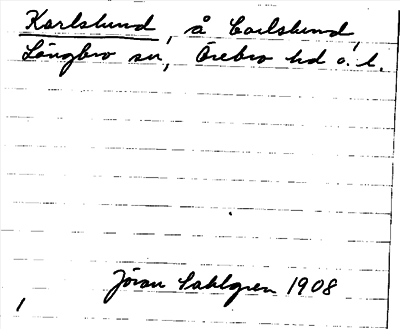 Karlslund, å Carlslund,
Längbro sn, Örebro hd o. l.
Jöran Sahlgren 1908